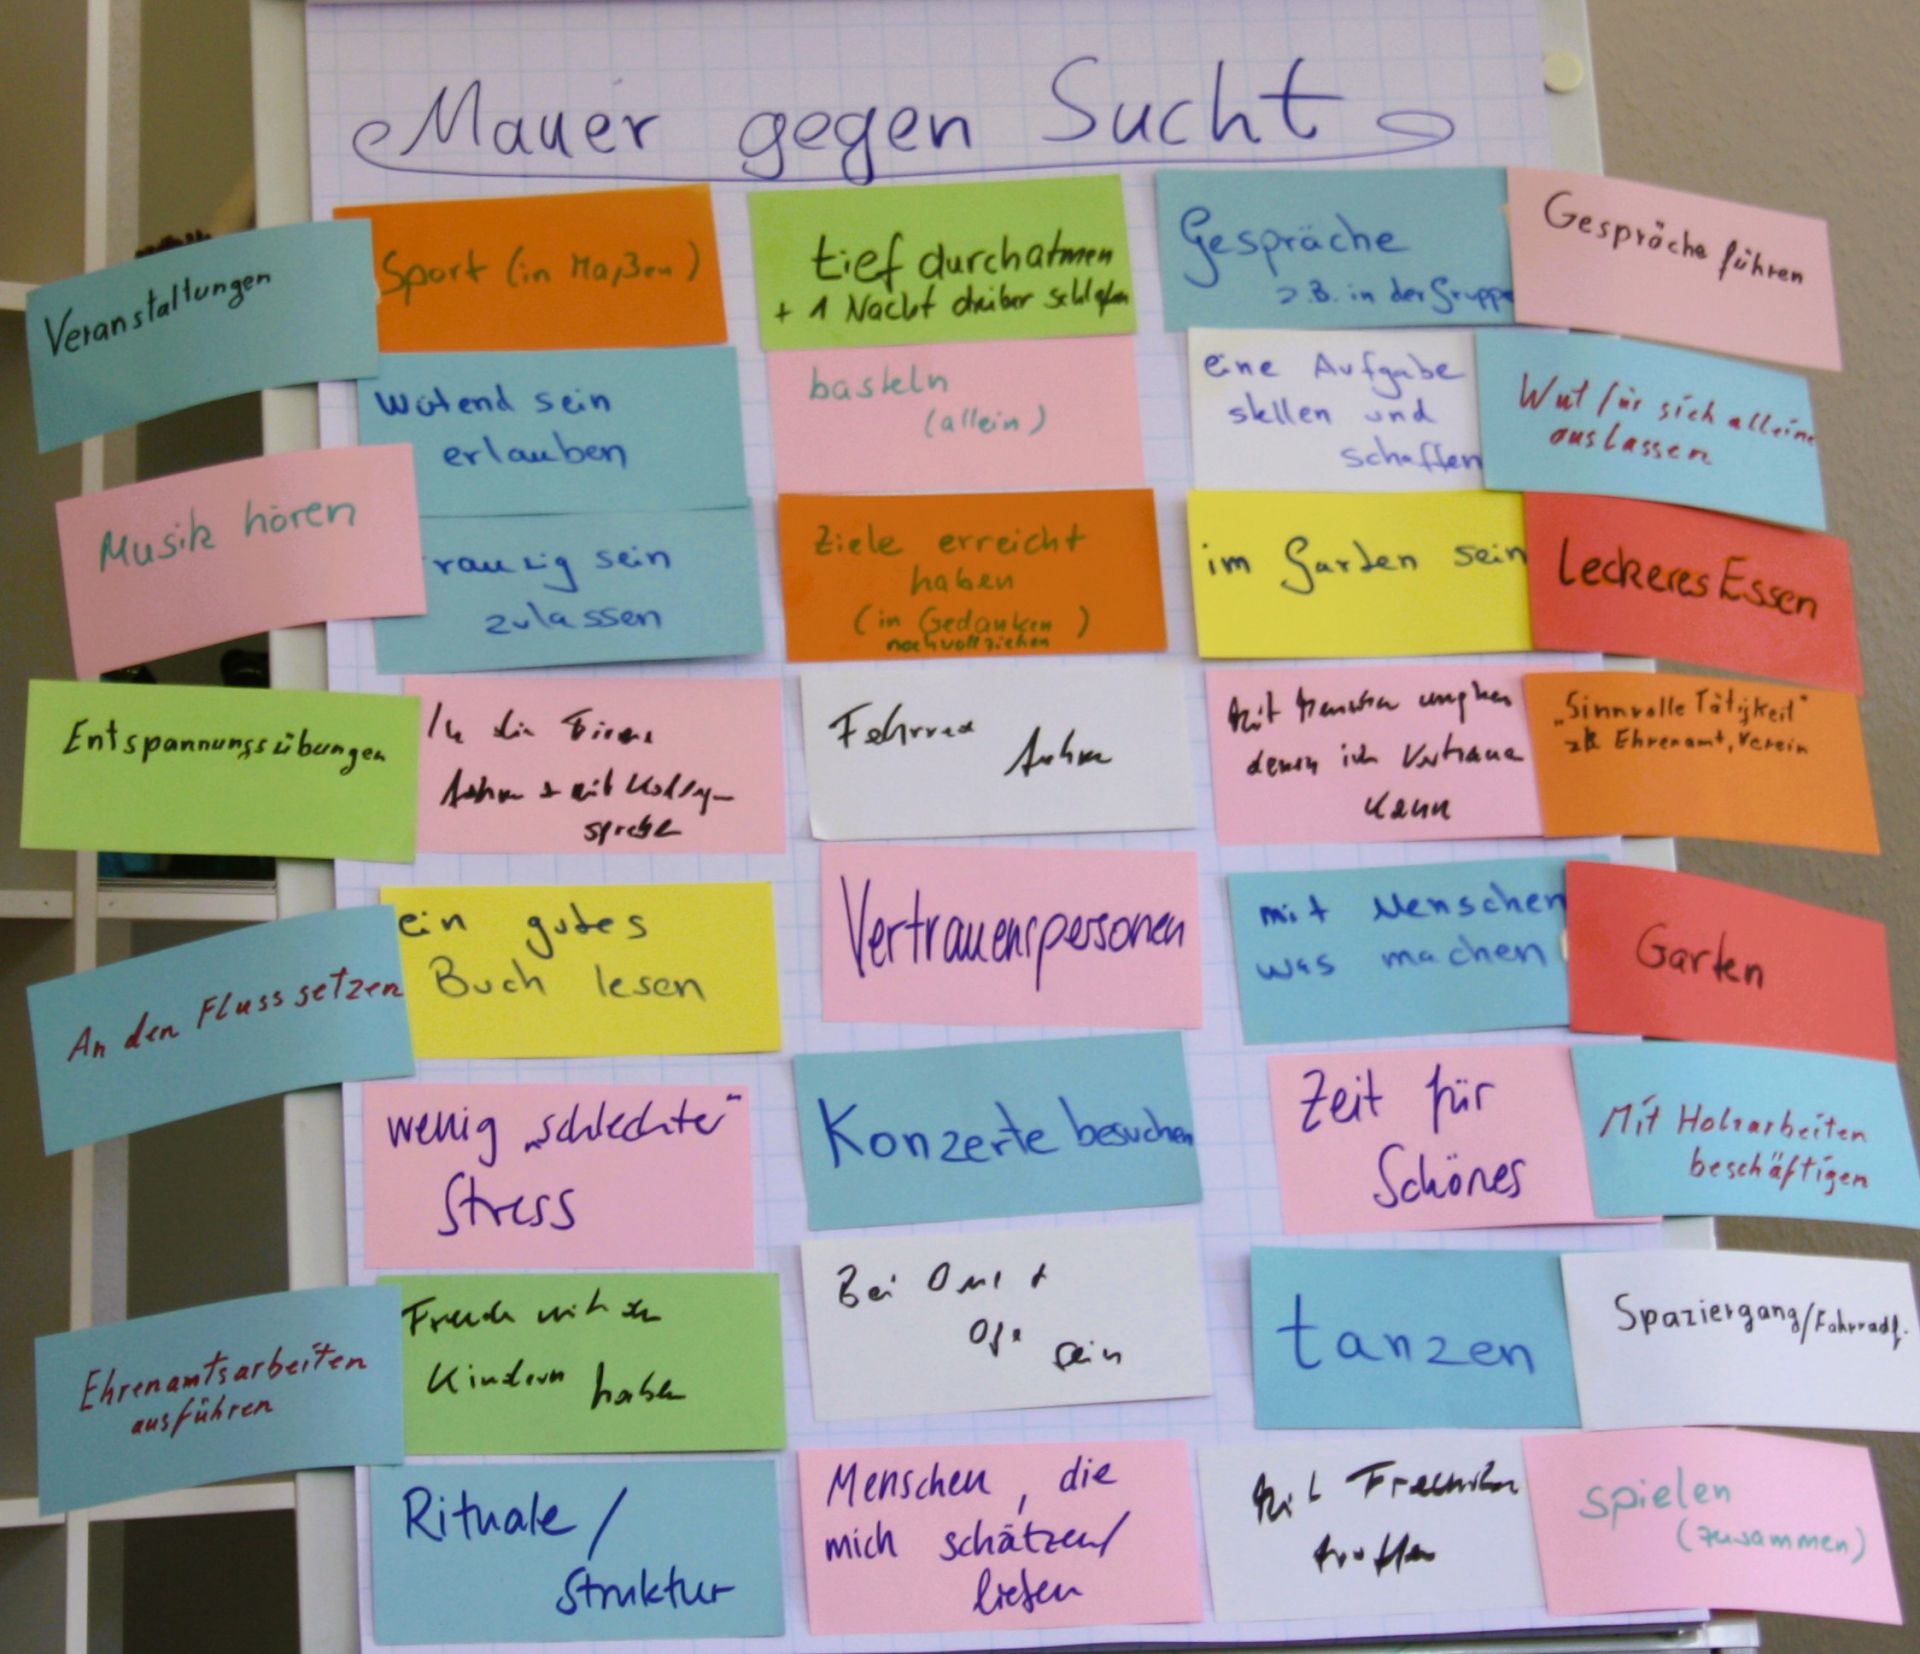 Mauer gegen Sucht
Veranstaltungen
Sport (in Maßen)
tief durchatmen
+ 1 Nacht drüber schlafen
Gespräche
z.B. in der Gruppe
Gespräche führen
Wütend sein
erlauben
basteln
(allein)
eine Aufgabe
stellen und
schaffen
Wut für sich alleine
auslassen
Musik hören
raurig sein
zulassen
Ziele erreicht
haben
(in Gedanken)
nachvollziehen
im Garten sein
Leckeres Essen
Entspannungsübungen
In die Firma
fahren + mit Kollegen
sprechen
Fahrrad
fahren
Mit Menschen umgeben
denen ich Vertrauen
kann
„Sinnvolle Tätigkeit"
zB Ehrenamt, Verein
An den Fluss setzen
ein gutes
Buch lesen
Vertrauenspersonen
mit Menschen
was machen
Garten
wenig „schlechter"
Stress
Konzerte besuchen
Zeit für
Schönes
Mit Holzarbeiten
beschäftigen
Ehrenamtsarbeiten
ausführen
Freude mit den
Kindern haben
Bei Omi +
Opi sein
tanzen
Spaziergang/Fahrradf.
Rituale/
Struktur
Menschen, die
mich schätzen/
lieben
Mit Freunden
treffen
spielen
(zusammen)